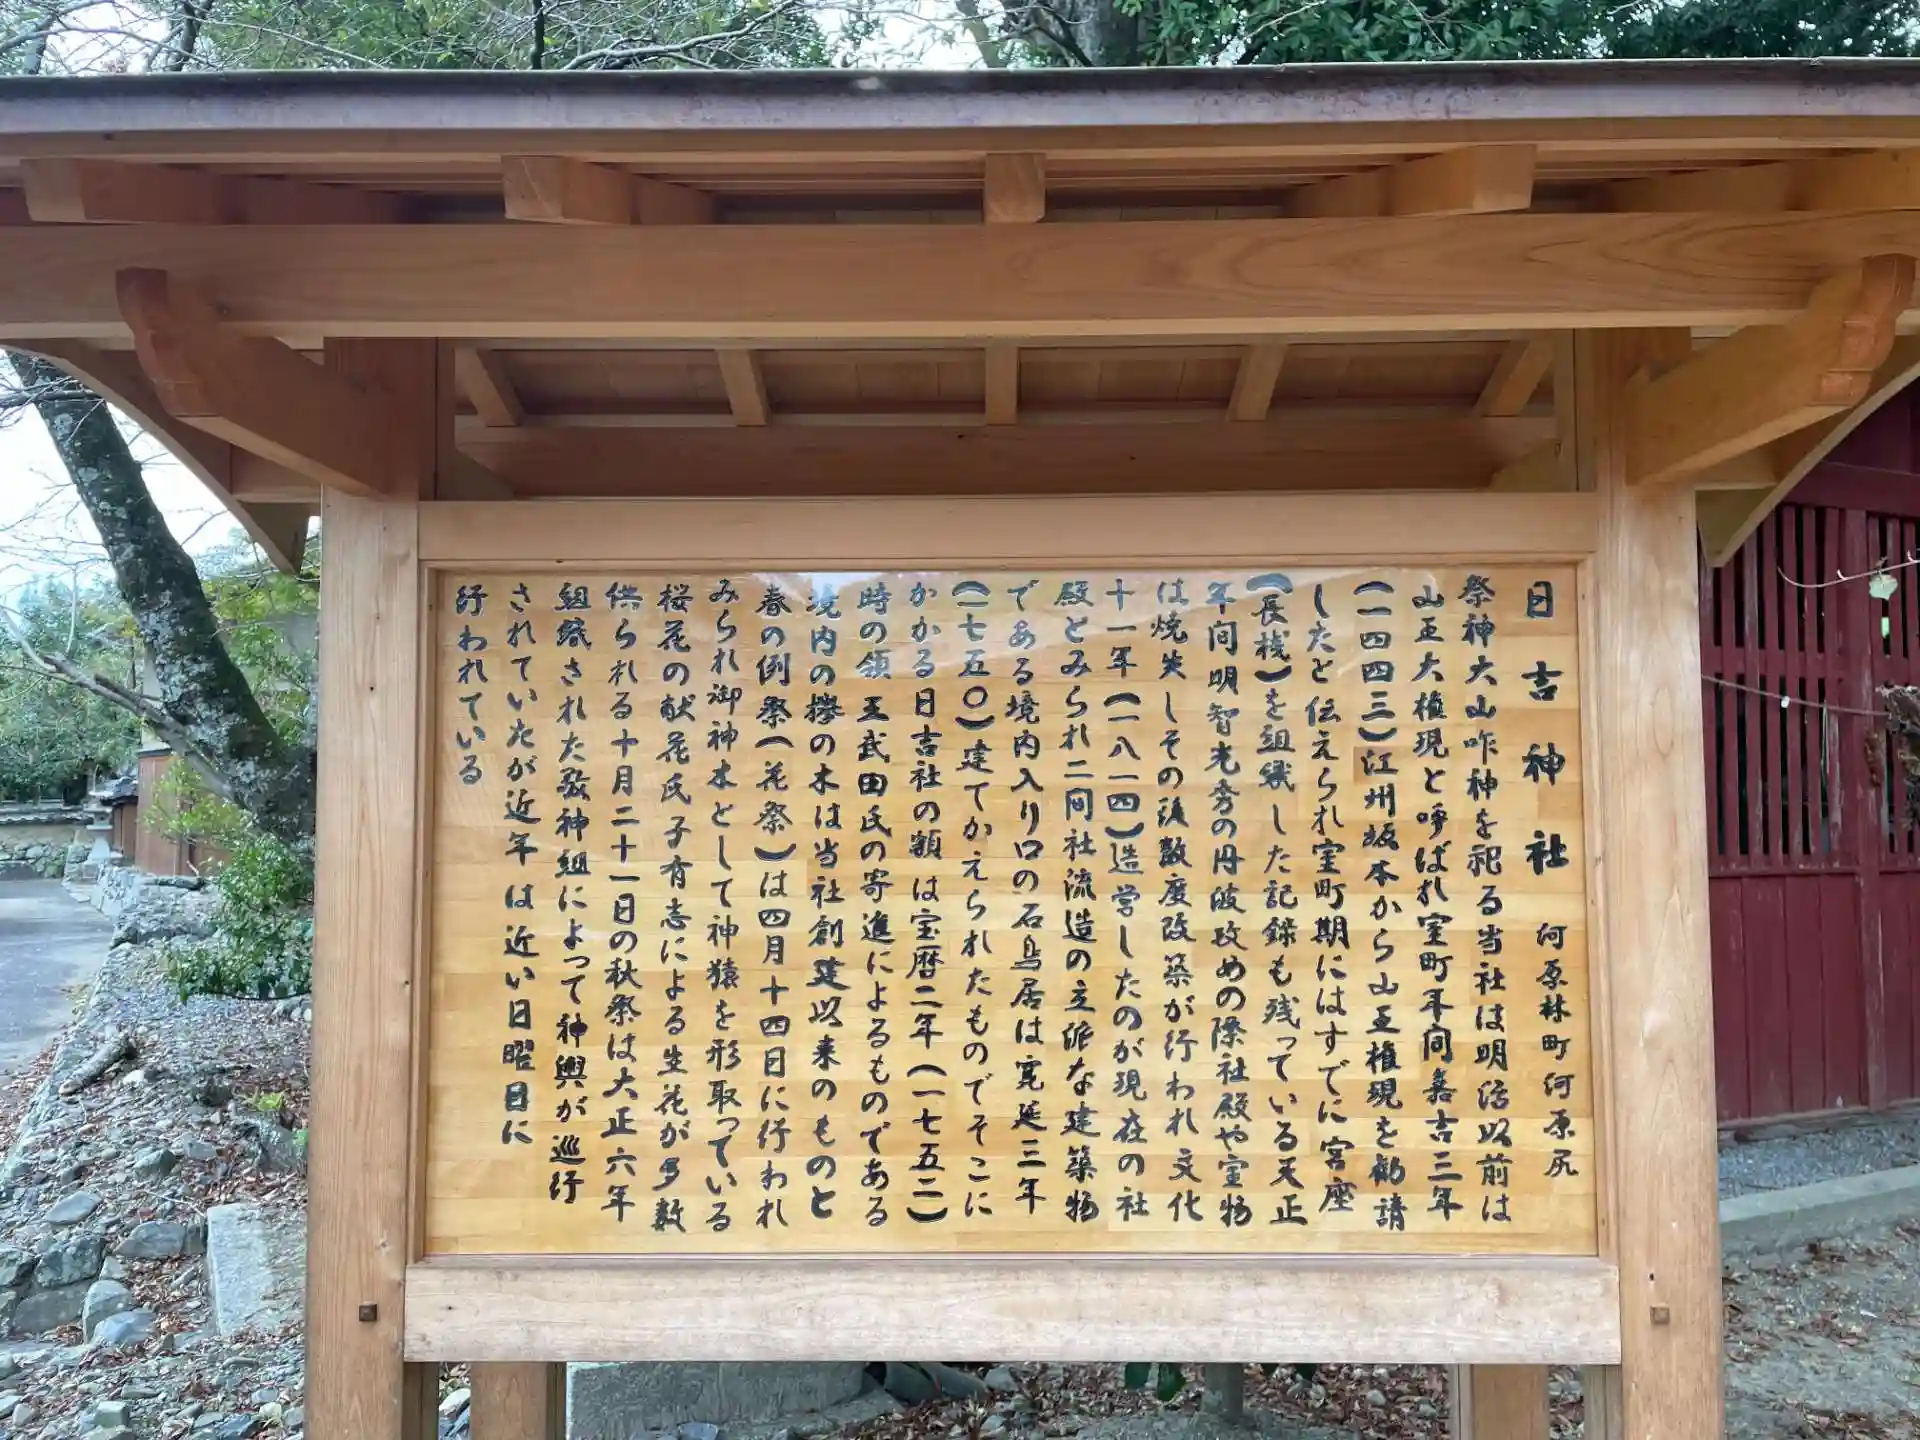 日吉神社 河原林町河原尻
祭神大山咋神を祀る当社は明治以前は
山王大権現と呼ばれ室町年間嘉吉三年
(一四四三)江州坂本から山王権現を勧請
したと伝えられ室町期にはすでに宮座
(長桟)を組織した記録も残っている天正
年間明智光秀の丹波攻めの際社殿や宝物
は焼失しその後数度改築が行われ文化
十一年(一八一四)造営したのが現在の社
殿とみられ二間社流造の立派な建築物
である境内入り口の石鳥居は寛延三年
(一七五〇)建てかえられたものでそこに
かかる日吉社の額は宝暦二年(一七五二)
時の領主武田氏の寄進によるものである
境内の欅の木は当社創建以来のものと
みられ御神木として神猿を形取っている
春の例祭(花祭)は四月十四日に行われ
桜花の献花氏子有志による生花が多数
供られる十月二十一日の秋祭は大正六年
組織された敬神組によって神輿が巡行
されていたが近年は近い日曜日に
行われている